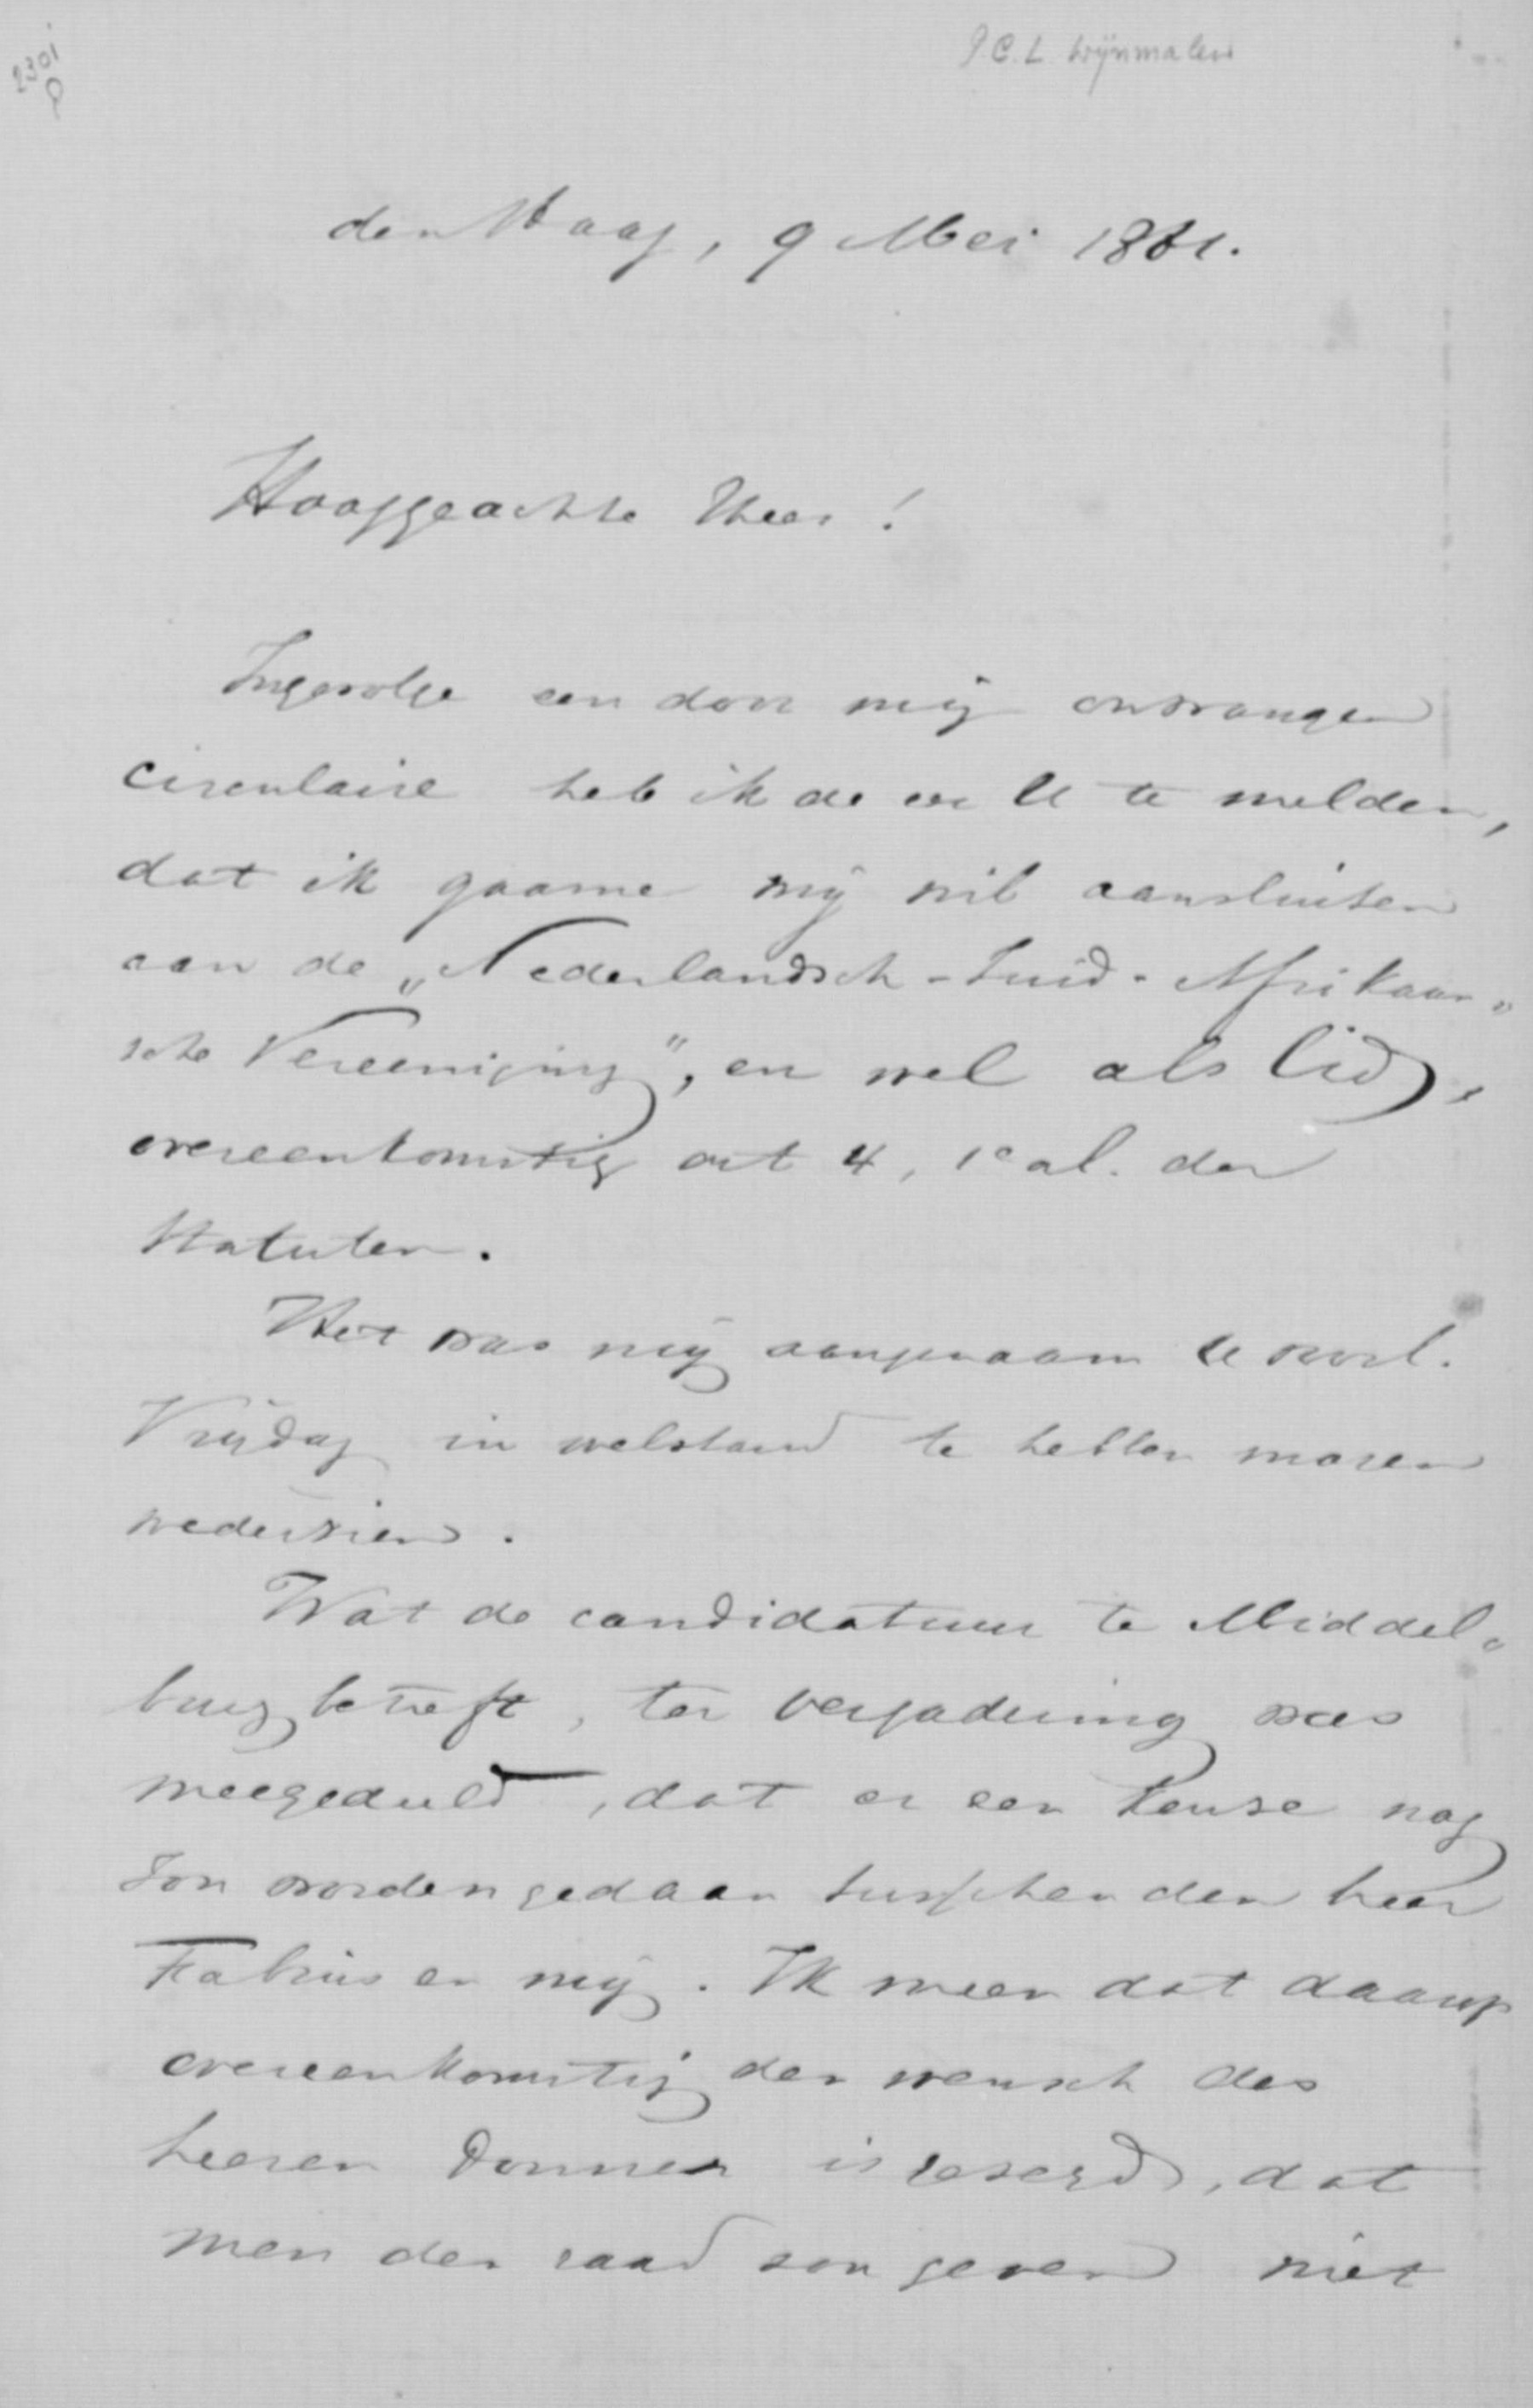 2301
P
P.C.L. Wijnmalen
den Haag, 9 Mei 1881.
Hooggeachte Heer!
Ingevolge een door mij ontvangen
circulaire heb ik de eer U te melden,
dat ik gaarne mij wil aansluiten
aan de „Nederlandsch-Zuid-Afrikaan„
sche Vereeniging", en wel als lid,
overeenkomstig art 4, 1e al. der
Statuten.
Het was mij aangenaam U voorl.
Vrijdag in welstand te hebben mogen
wederzien.
Wat de candidatuur te Middel„
burg betreft, ter vergadering was
meegedeeld, dat er een keuze nog
zou worden gedaan tusschen den heer
Fabius en mij. Ik meen dat daarop
overeenkomstig den wensch des
heeren Donner is gezegd, dat
men den raad zou geven niet